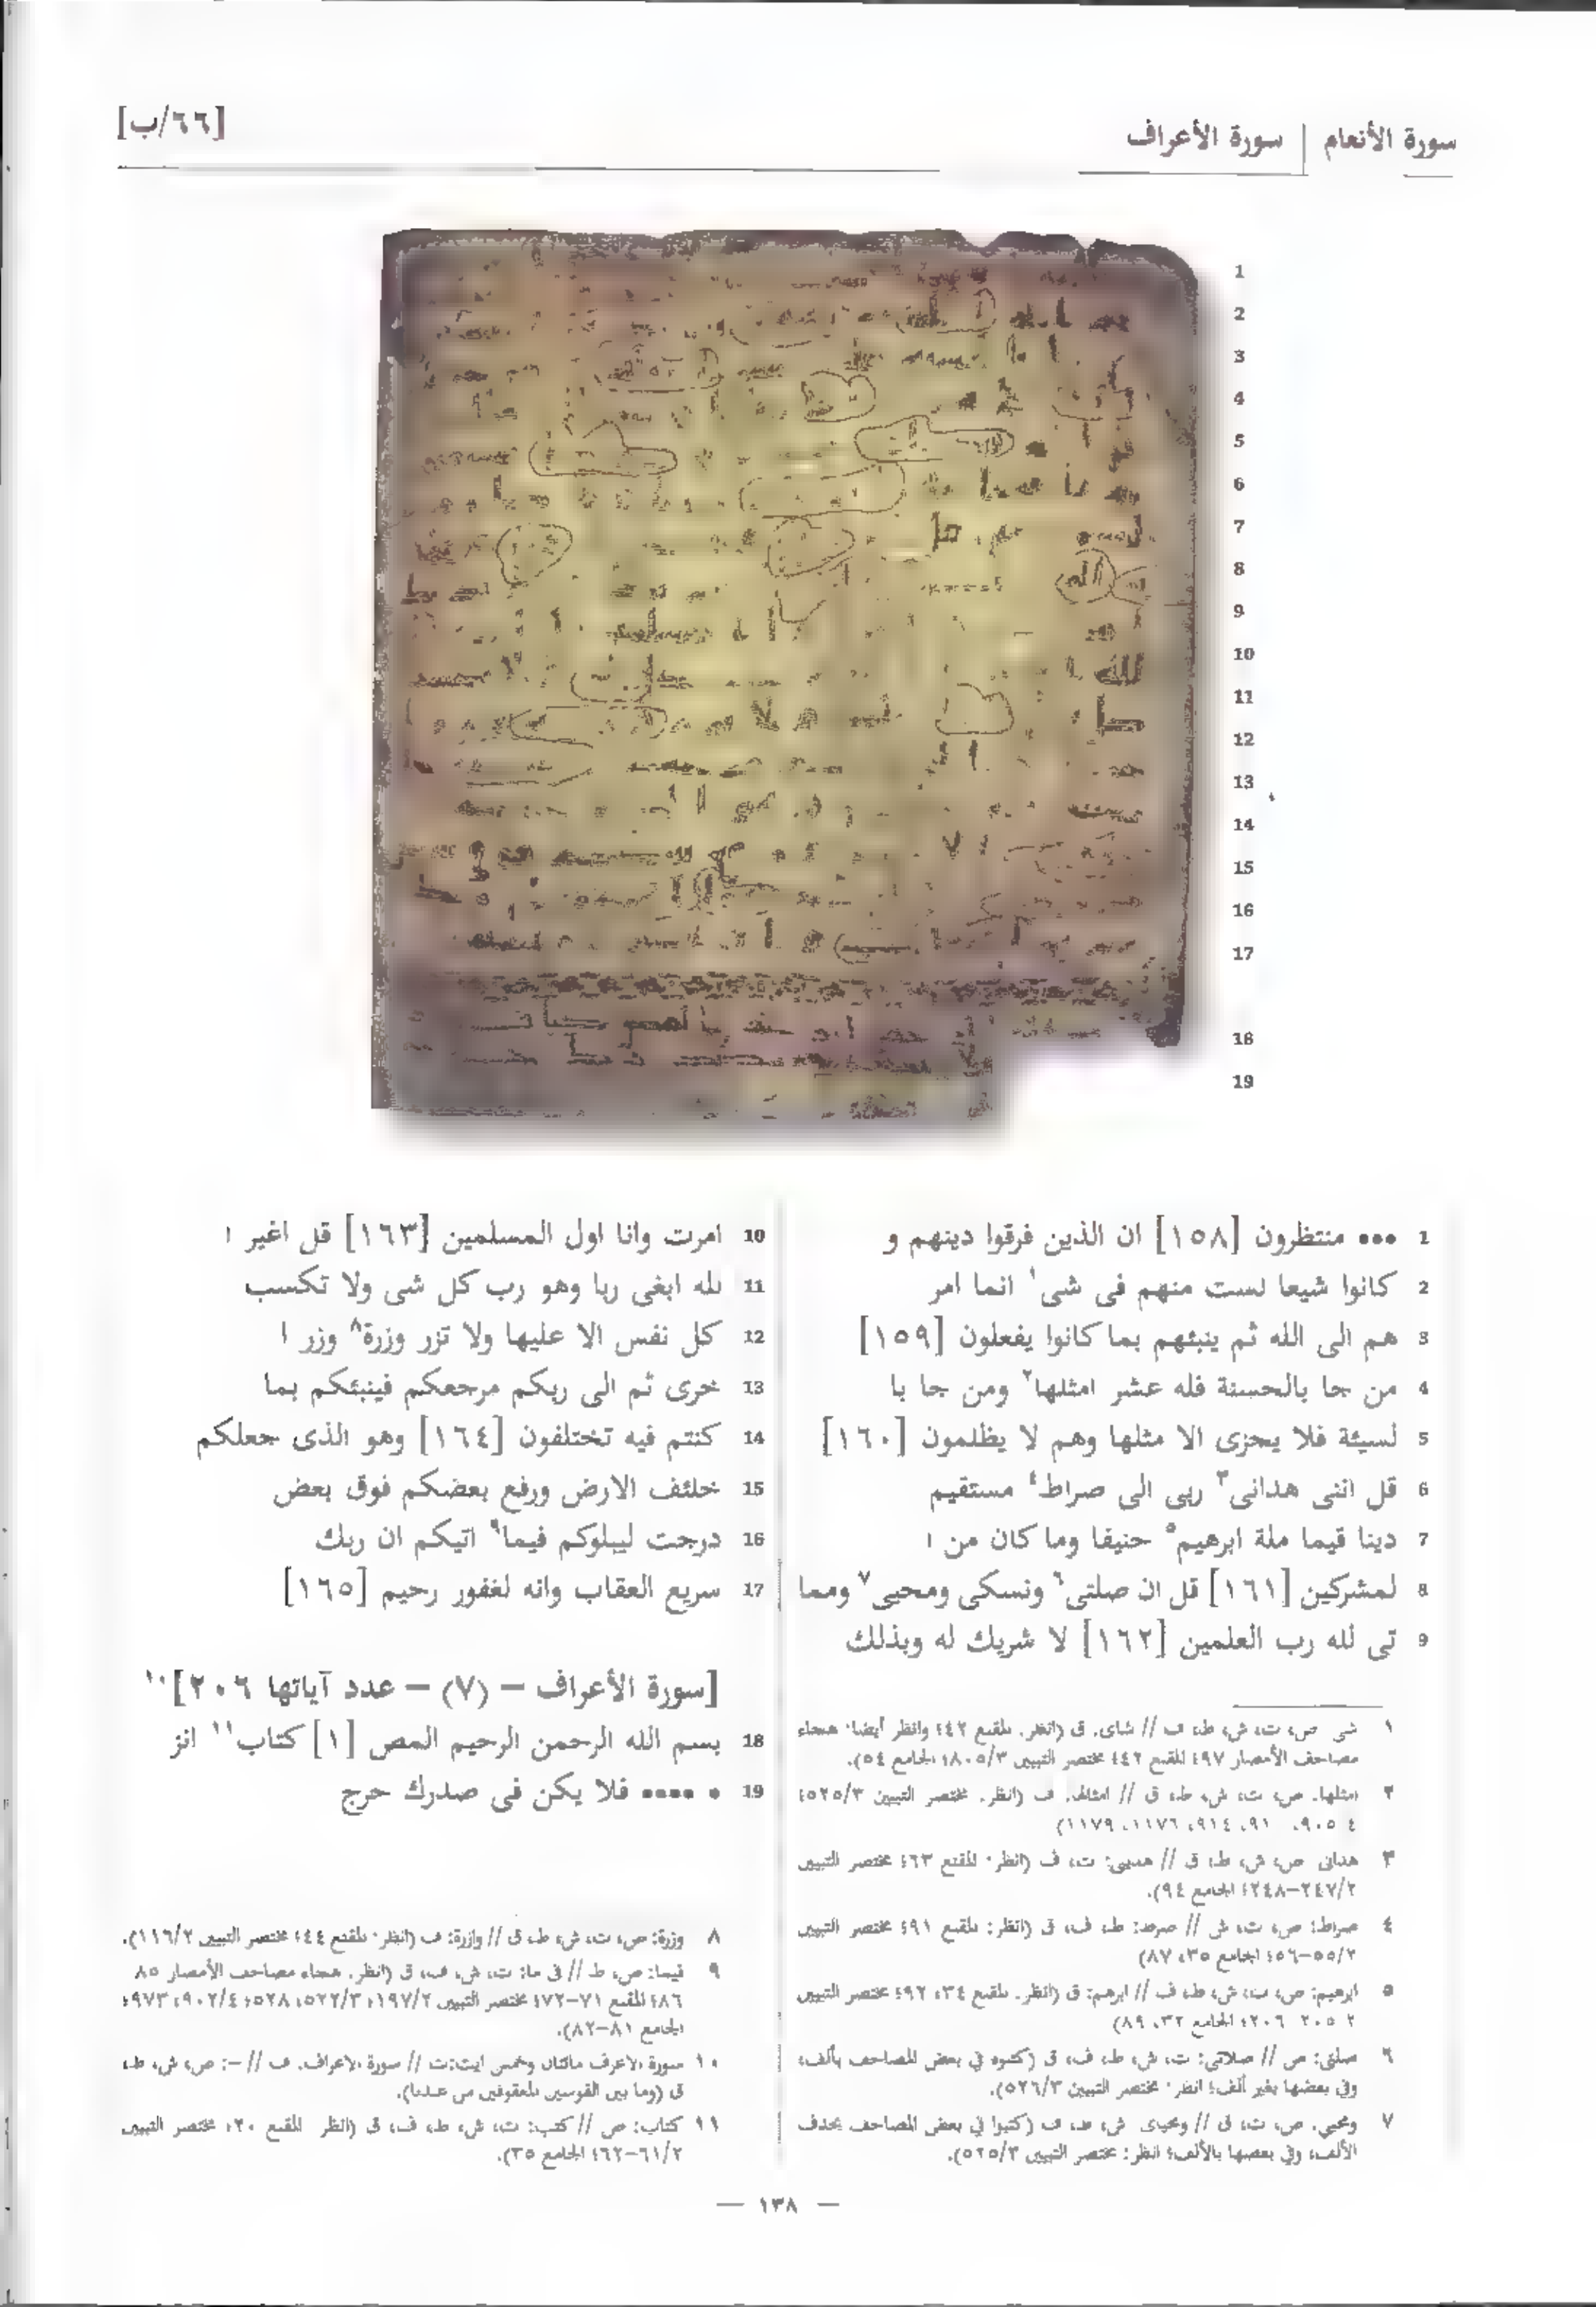 سورة الأنعام | سورة الأعراف
[٦٦/ب]
1 ••• منتظرون [١٥٨] ان الذين فرقوا دينهم و
2 كانوا شيعا لست منهم فى شى١ انما امر
3 هم الى الله ثم ينبئهم بما كانوا يفعلون [١٥٩]
4 من جا بالحسنة فله عشر امثلها٢ ومن جا با
5 لسيئة فلا يجزى الا مثلها وهم لا يظلمون [١٦٠]
6 قل اننى هدانى٣ ربى الى صراط٤ مستقيم
7 دينا قيما ملة ابرهيم٥ حنيفا وما كان من ا
8 لمشركين [١٦١] قل ان صلتى٦ ونسكى ومحيى٧ ومما
9 تى لله رب العلمين [١٦٢] لا شريك له وبذلك
10 امرت وانا اول المسلمين [١٦٣] قل اغير ا
11 لله ابغى ربا وهو رب كل شى ولا تكسب
12 كل نفس الا عليها ولا تزر وزرة٨ وزر ا
13 خرى ثم الى ربكم مرجعكم فينبئكم بما
14 كنتم فيه تختلفون [١٦٤] وهو الذى جعلكم
15 خلئف الارض ورفع بعضكم فوق بعض
16 درجت ليبلوكم فيما٩ اتيكم ان ربك
17 سريع العقاب وانه لغفور رحيم [١٦٥]
[سورة الأعراف – (٧) – عدد آياتها ٢٠٦]١٠
18 بسم الله الرحمن الرحيم المص [١] كتاب١١ انز
19 • •••• فلا يكن فى صدرك حرج
١ شى ص، ت، ش، ط، ف // شاى. ق (انظر. المقنع ٤٢؛ وانظر أيضا: هجاء
مصاحف الأمصار ٩٧؛ المقنع ٤٢؛ مختصر التبيين ٨٠٥/٣؛ الجامع ٥٤).
٢ امثلها. ص، ت، ش، ط، ق // امثالها. ف (انظر. مختصر التبيين ٥٢٥/٣؛
٤ ٩٠٥، ٩١، ٩١٤، ١١٧٦، ١١٧٩)
٣ هدانى ص، ش، ط، ق // هدينى: ت، ف (انظر: المقنع ٦٣؛ مختصر التبيين
٢٤٧/٢–٢٤٨؛ الجامع ٩٤).
٤ صراط: ص، ت، ش // صرط: ط، ف، ق (انظر: المقنع ٩١؛ مختصر التبيين
٥٥/٢–٥٦؛ الجامع ٣٥، ٨٧)
٥ ابرهيم: ص، ت، ش، ط، ف // ابرهم: ق (انظر. المقنع ٣٤، ٩٢؛ مختصر التبيين
٢ ٢٠٥ ٢٠٦؛ الجامع ٣٢، ٨٩)
٦ صلتى: ص // صلاتى: ت، ش، ط، ف، ق (كتبوه في بعض المصاحف بألف،
وفي بعضها بغير ألف؛ انظر: مختصر التبيين ٥٢٦/٣).
٧ ومحيى. ص، ت، ق // ومحياى ش، ط، ف (كتبوا في بعض المصاحف بحذف
الألف، وفي بعضها بالألف؛ انظر: مختصر التبيين ٥٢٥/٣).
٨ وزرة: ص، ت، ش، ط، ق // وازرة: ف (انظر: المقنع ٤٤؛ مختصر التبيين ١١٦/٢).
٩ فيما: ص، ط // فى ما: ت، ش، ف، ق (انظر. هجاء مصاحف الأمصار ٨٥
٨٦؛ المقنع ٧١–٧٢؛ مختصر التبيين ١٩٧/٢؛ ٥٢٢/٣، ٥٢٨؛ ٩٠٢/٤، ٩٧٣؛
الجامع ٨١–٨٢).
١٠ سورة الاعرف مائتان وخمس ايت: ت // سورة الاعراف. ف // –: ص، ش، ط،
ق (وما بين القوسين المعقوفين من عندنا).
١١ كتاب: ص // كتب: ت، ش، ط، ف، ق (انظر المقنع ٢٠؛ مختصر التبيين
٦١/٢–٦٢؛ الجامع ٣٥).
— ١٣٨ —